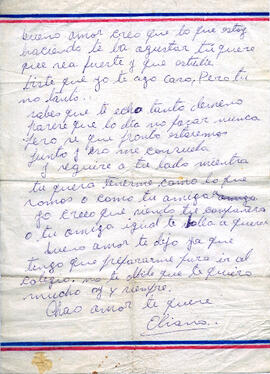 bueno amor creo que lo que estoy
haciendo te ba agustar tu quiere
que sea fuerte y que estudie
dirte que yo te ago caso. Pero tu
no tanto..
sabes que te echo tanto demeno
parese que lo dia no pazar nunca
Pero se que pronto estaremos
junto y eso me consuela
y seguire a tu lado mientra
tu quera tenerme como lo que
somos o como tu amiga
yo creo que, siendo tu compañera
o tu amiga igual te bolla a querer
bueno amor te dejo ya que
tengo que prepararme para ir al
colegio. no te olvide que te quiero
mucho oy y siempre.
Chao amor te quere
Eliana..